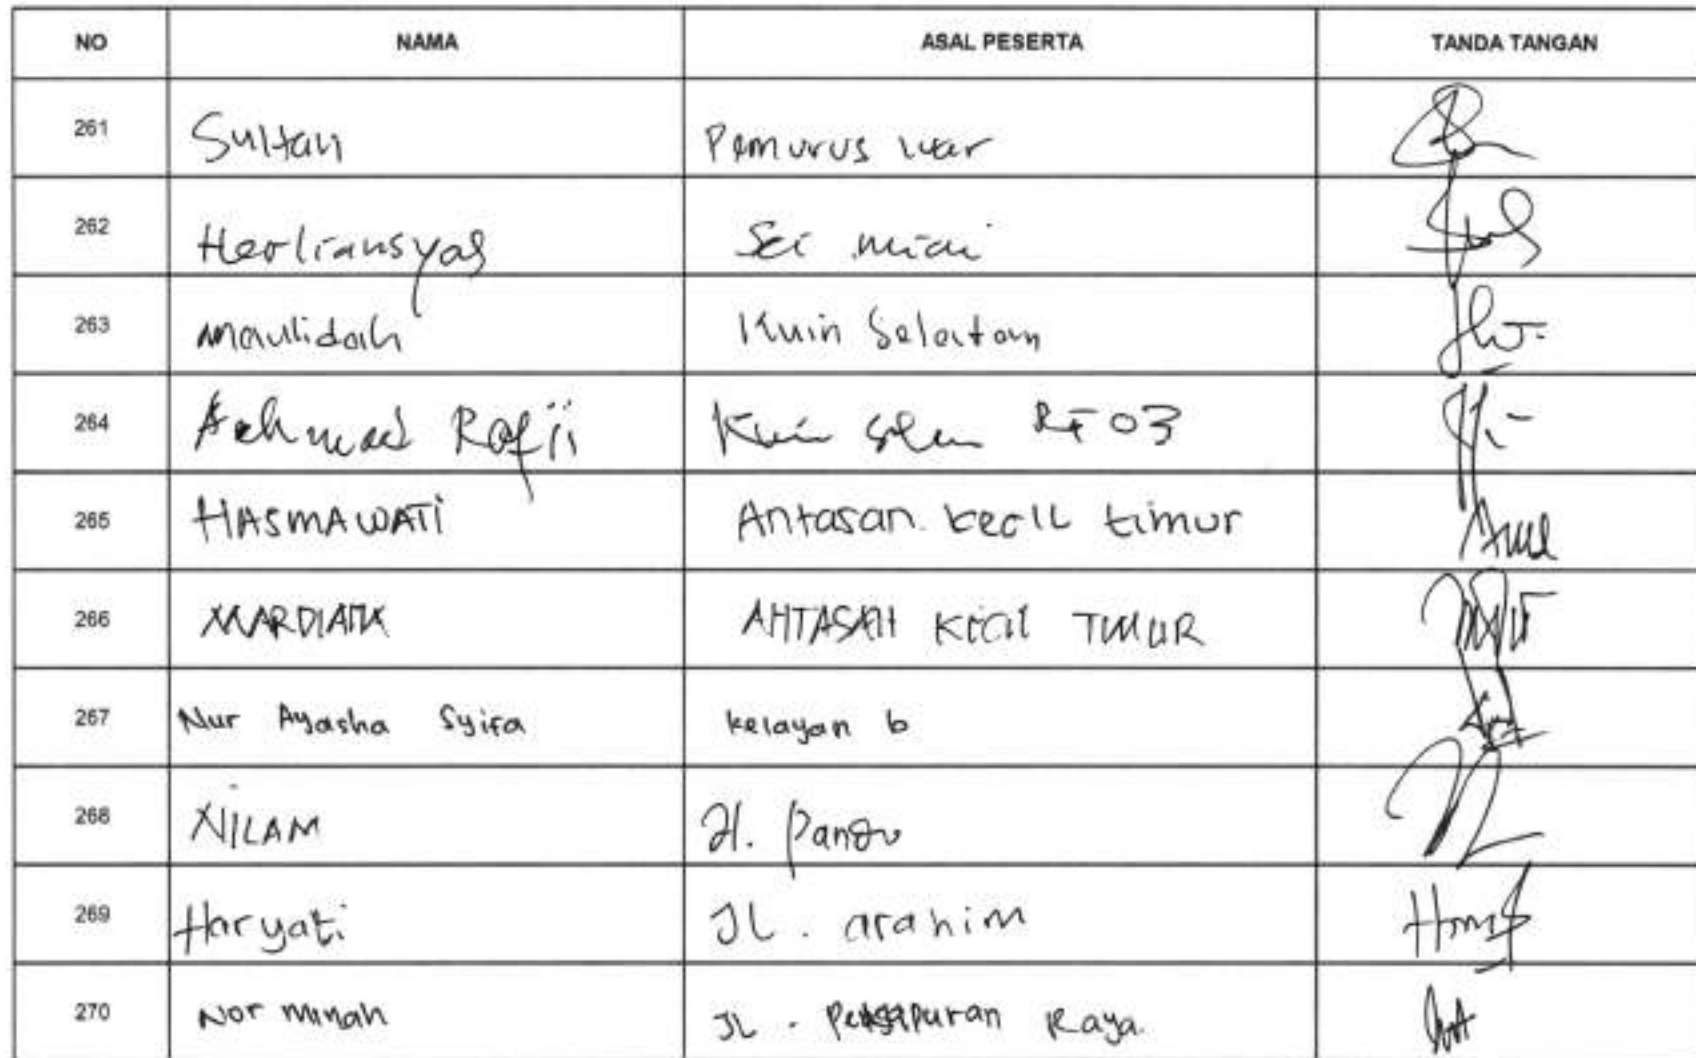 NO NAMA ASAL PESERTA TANDA TANGAN
261 Sultan Pemurus luar
262 Herliansyah Sei miai
263 maulidah Kuin Selatan
264 Achmad Rafii Kuin RT 03
265 HASMAWATi Antasan kecil timur
266 MARDIANA ANTASAN KECIL TIMUR
267 Nur Ayasha Syifa kelayan b
268 NILAM Jl. Pandu
269 Haryati JL. arahim
270 Nor minah JL. Pengapuran Raya.